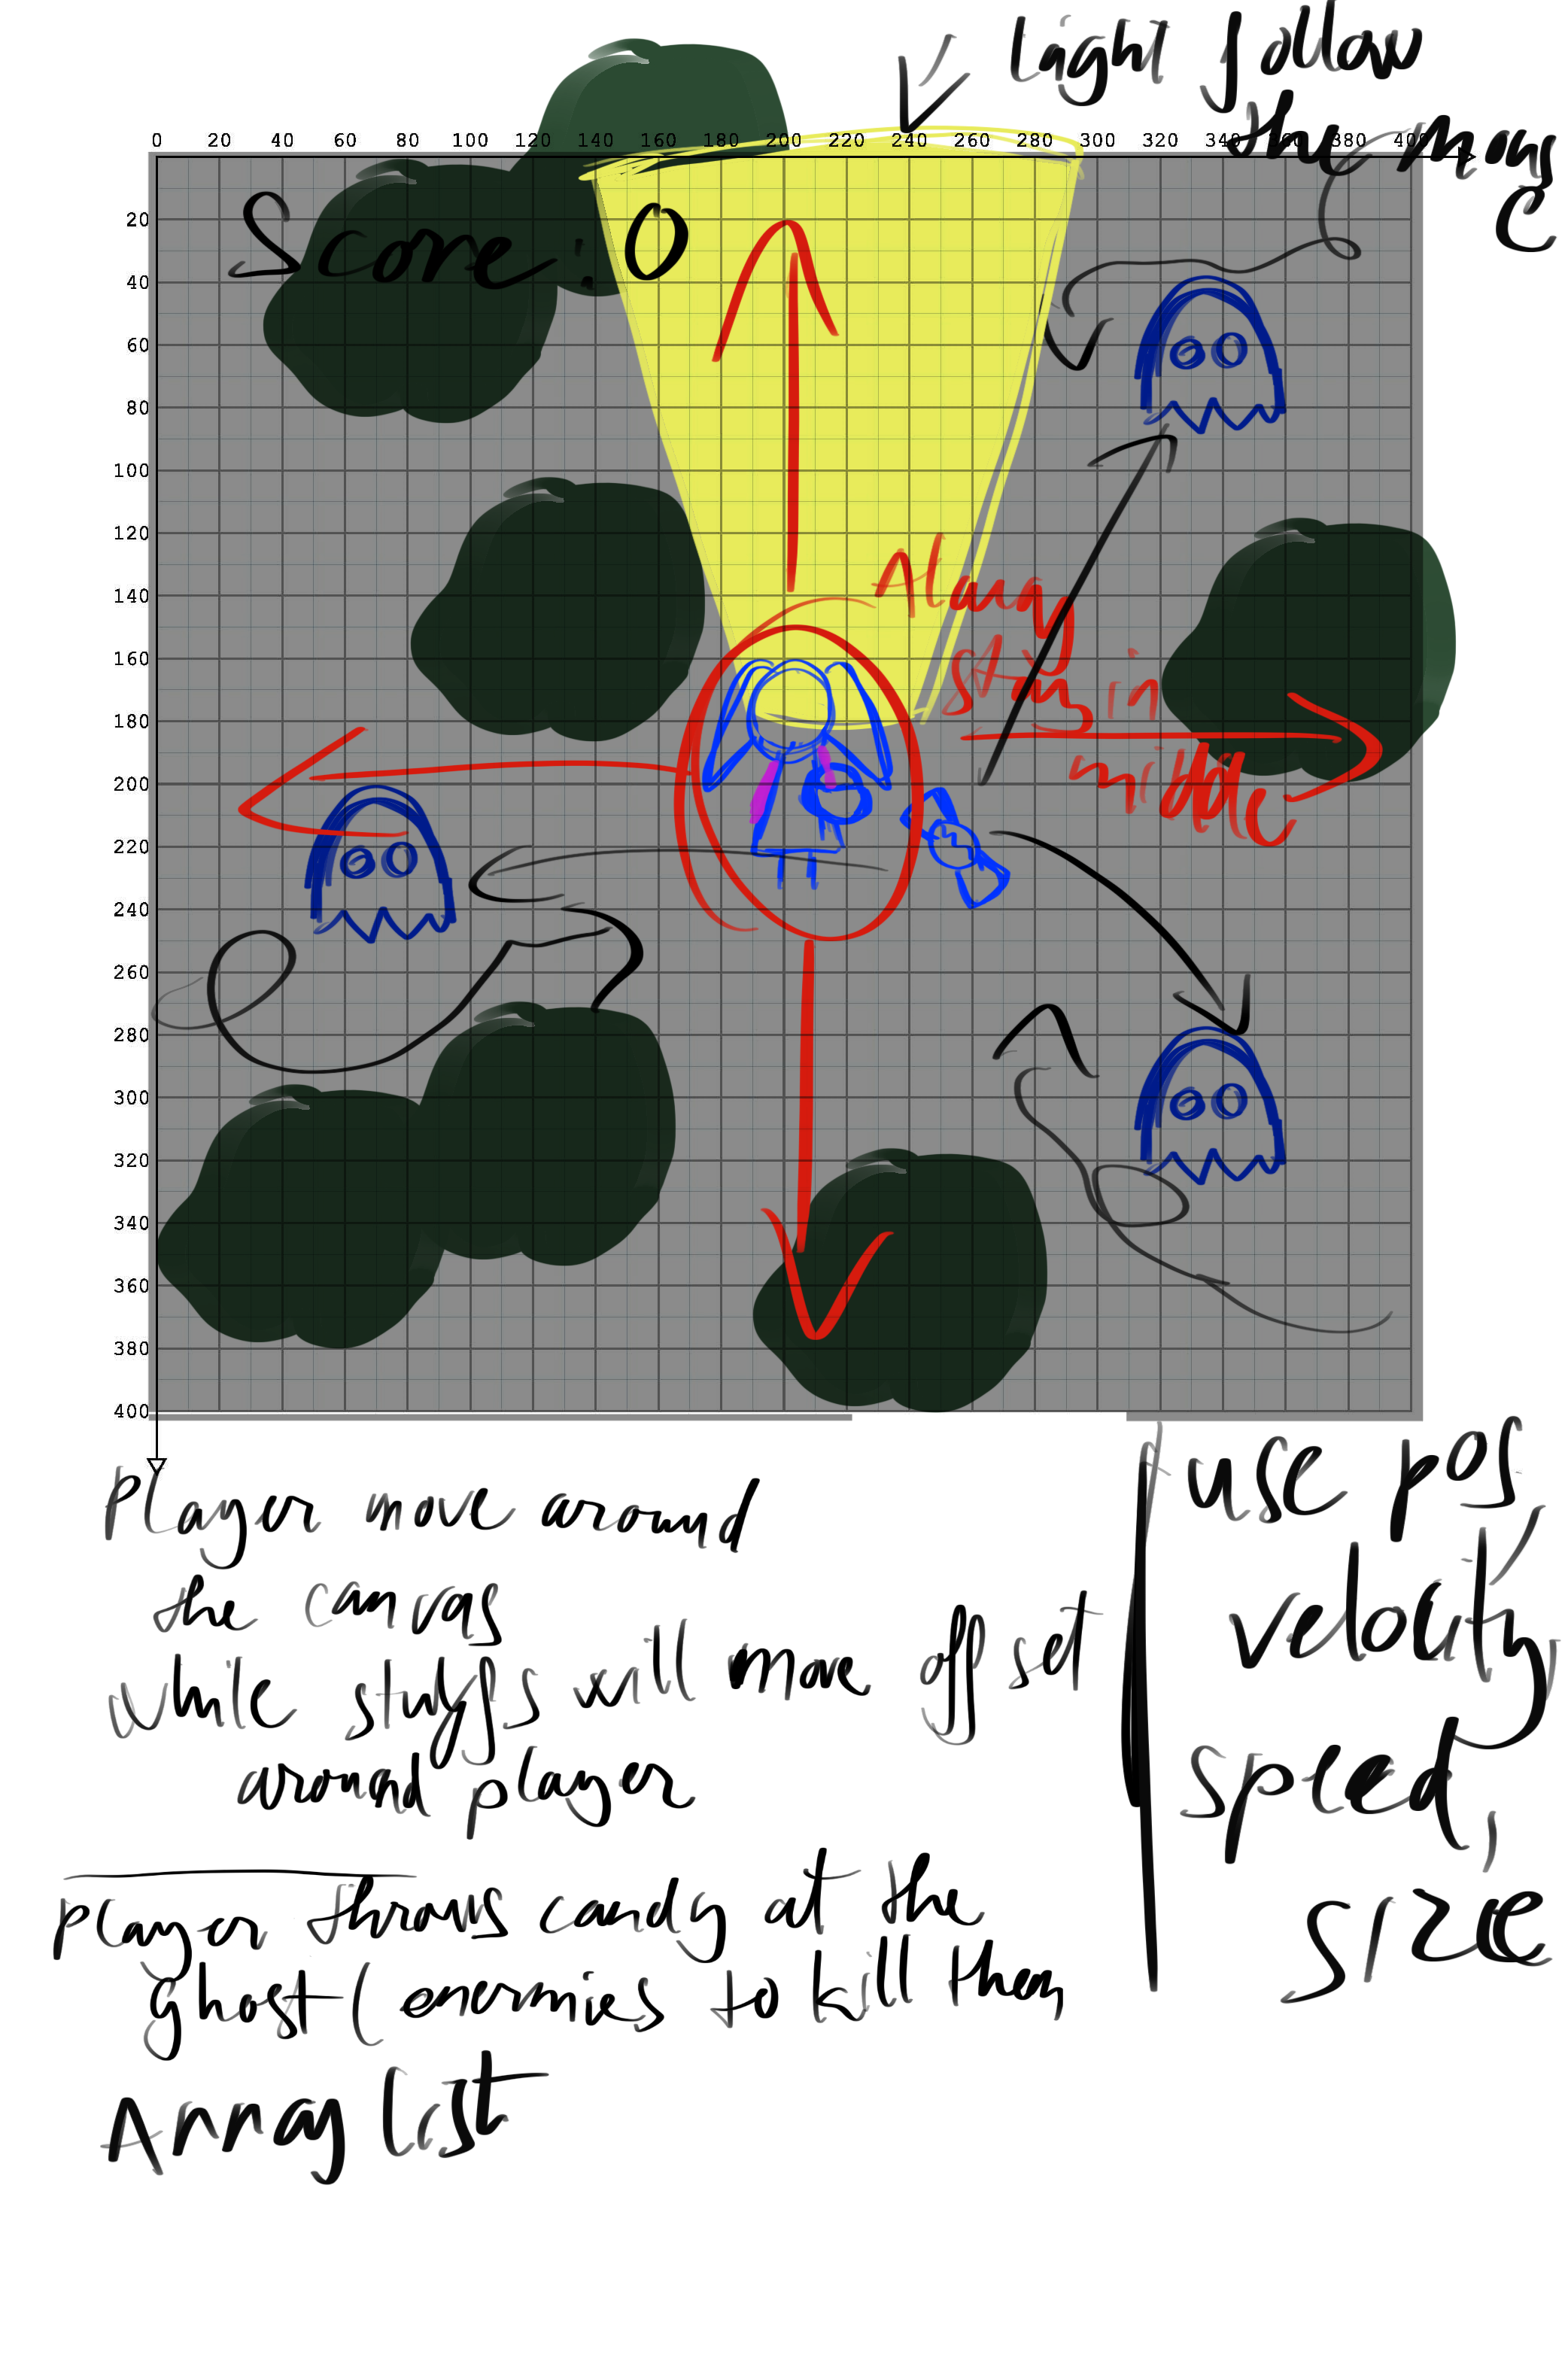 Light follow
the mous
e
0 20 40 60 80 100 120 140 160 180 200 220 240 260 280 300 320 340 360 380 400
20
Score : 0
40
60
80
100
120
140
Alway
160
stays in
180
200
middle
220
240
260
280
300
320
340
360
380
400
Player move around
the canvas
while stuffs will move offset
around player
player throws candy at the
ghost ( enermies to kill them
Array list
use pos,
velocity,
speed,
size